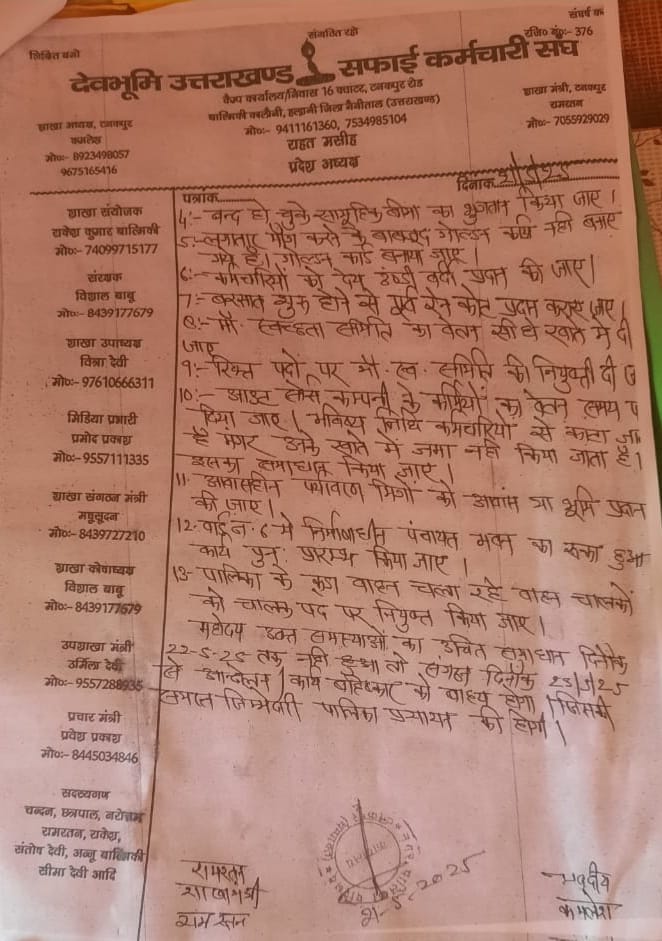 संघर्ष क
संगठित रहो
रजि० नं०:- 376
शिक्षित बनो
देवभूमि उत्तराखण्ड सफाई कर्मचारी संघ
कैम्प कार्यालय/निवास 16 क्वाटर, टनकपुर रोड
वाल्मिकी कालौनी, हल्द्वानी जिला नैनीताल (उत्तराखण्ड)
मो०:- 9411161360, 7534985104
राहत मसीह
प्रदेश अध्यक्ष
शाखा अध्यक्ष, टनकपुर
कमलेश
मो०:- 8923498057
9675165416
शाखा मंत्री, टनकपुर
रामरतन
मो०:- 7055929029
पत्रांक
दिनांक
शाखा संयोजक
राकेश कुमार वाल्मिकी
मो०:- 74099715177
संरक्षक
विशाल बाबू
मो०:- 8439177679
शाखा उपाध्यक्ष
चित्रा देवी
मो०:- 97610666311
मिडिया प्रभारी
प्रमोद प्रकाश
मो०:- 9557111335
शाखा संगठन मंत्री
मधुसूदन
मो०:- 8439727210
शाखा कोषाध्यक्ष
विशाल बाबू
मो०:- 8439177679
उपशाखा मंत्री
उर्मिला देवी
मो०:- 9557288935
प्रचार मंत्री
प्रवेश प्रकाश
मो०:- 8445034846
सदस्यगण
चन्दन, छत्रपाल, नरोत्तम
रामरतन, राकेश,
संतोष देवी, अन्जू वाल्मिकी
सीमा देवी आदि
4:- बन्द हो चुके सामूहिक बीमा का भुगतान किया जाए।
5:- लगातार माँग करने के बावजूद गोल्डन कार्ड नही बनाए
गये है। गोल्डन कार्ड बनाया जाए।
6:- कर्मचारियों को देय ठण्डी वर्दी प्रदान की जाए।
7:- बरसात शुरू होने से पूर्व रेन कोट प्रदान कराए जाए।
8:- मौ. स्वच्छता समिति का वेतन सीधे खाते में दी
जाए
9:- रिक्त पदों पर मौ. स्व. समिति की नियुक्ती दी ज
10:- आउट सोर्स कम्पनी के कर्मियों का वेतन समय प
दिया जाए। भविष्य निधि कर्मचारियों से काटा जा
है मगर उनके खाते में जमा नही किया जाता है।
इसका समाधान किया जाए।
11. आवासहीन पर्यावरण मित्रों को आवास या भूमि प्रदान
की जाए।
12. वार्ड नं. 6 मे निर्माणाधीन पंचायत भवन का रूका हुआ
कार्य पुन: प्रारम्भ किया जाए।
13- पालिका के कूडा वाहन चला रहे वाहन चालकों
को चालक पद पर नियुक्त किया जाए।
महोदय उक्त समस्याओं का उचित समाधान दिनाँक
22-5-25 तक नही हुआ तो संगठन दिनाँक 23/5/25
से आन्दोलन / कार्य बहिष्कार को बाध्य होगा। जिसकी
समस्त जिम्मेदारी पालिका प्रशासन की होगी।
रामरतन
शाखामंत्री
राम रतन
21-5-2025
भवदीय
कमलेश